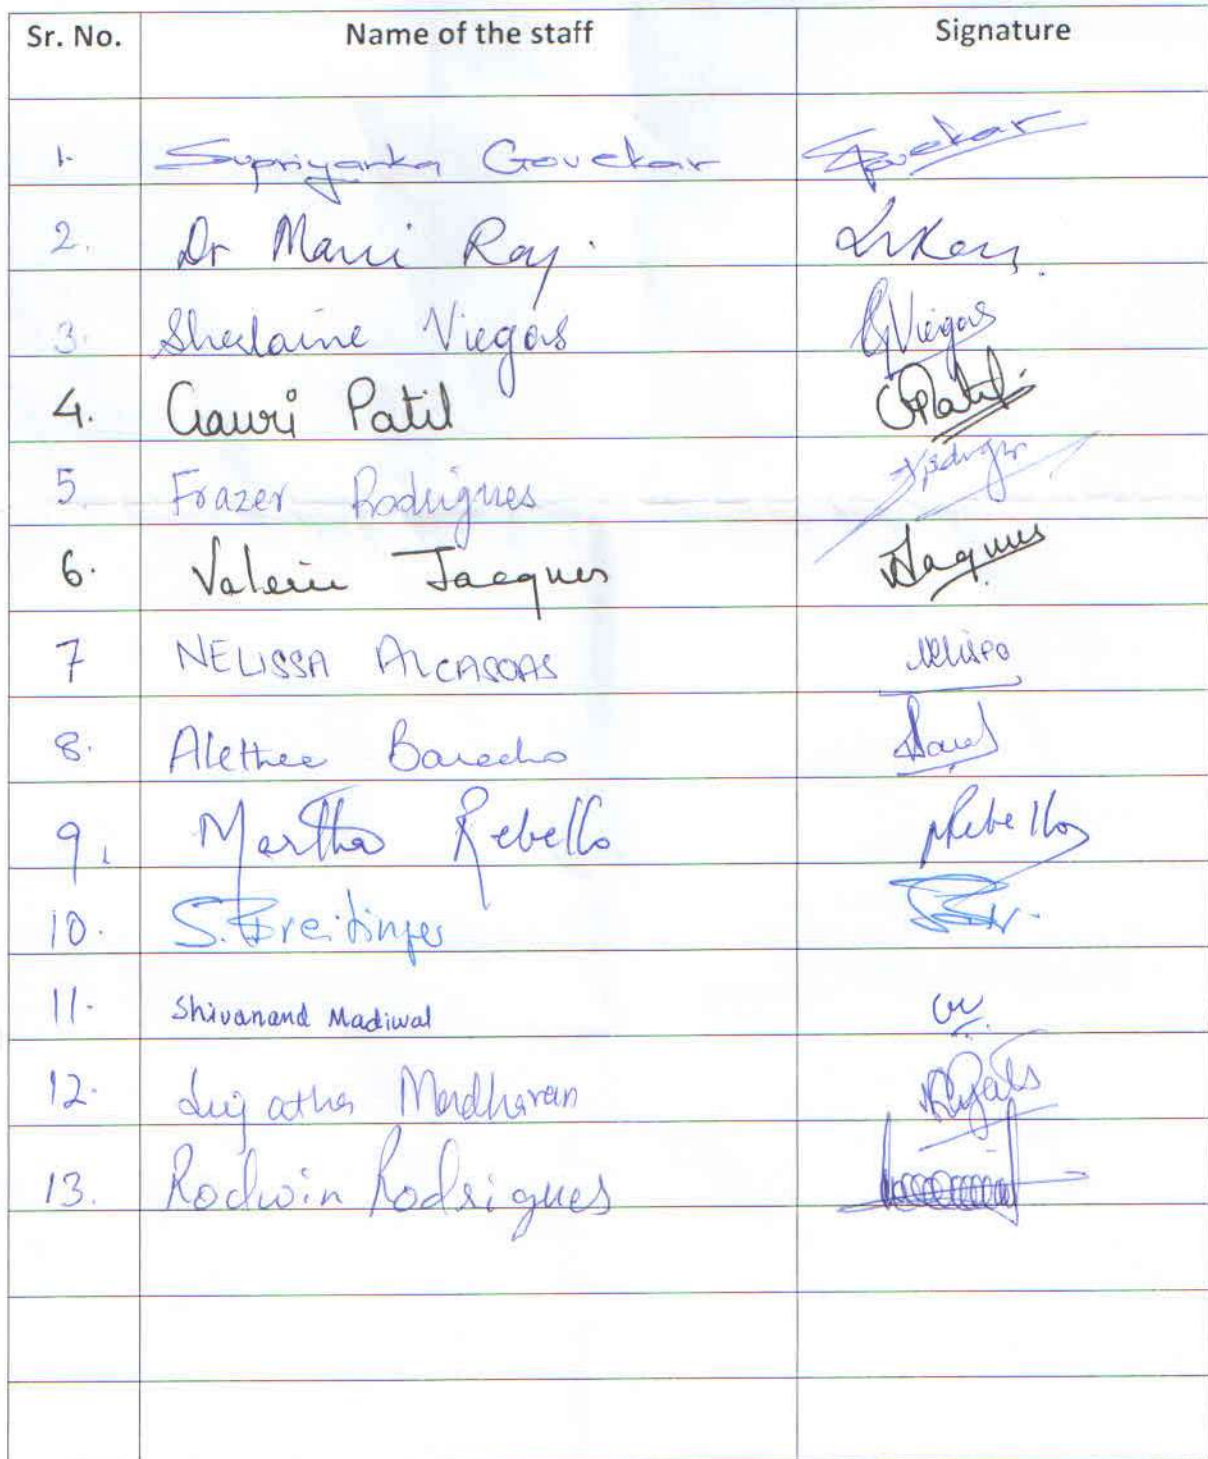 Sr. No. Name of the staff Signature
1. Supriyanka Govekar Govekar
2. Dr Maria Ray.
3. Sherlaine Viegas Viegas
4. Gauri Patil GPatil
5. Frazer Rodrigues
6. Valerie Jacques Jacques
7 NELISSA ALCASOAS Nelissa
8. Alethea Baredo
9. Martha Rebello MRebello
10. S. Breitinger
11. Shivanand Madiwal
12. Sujatha Madhavan
13. Rodwin Rodrigues